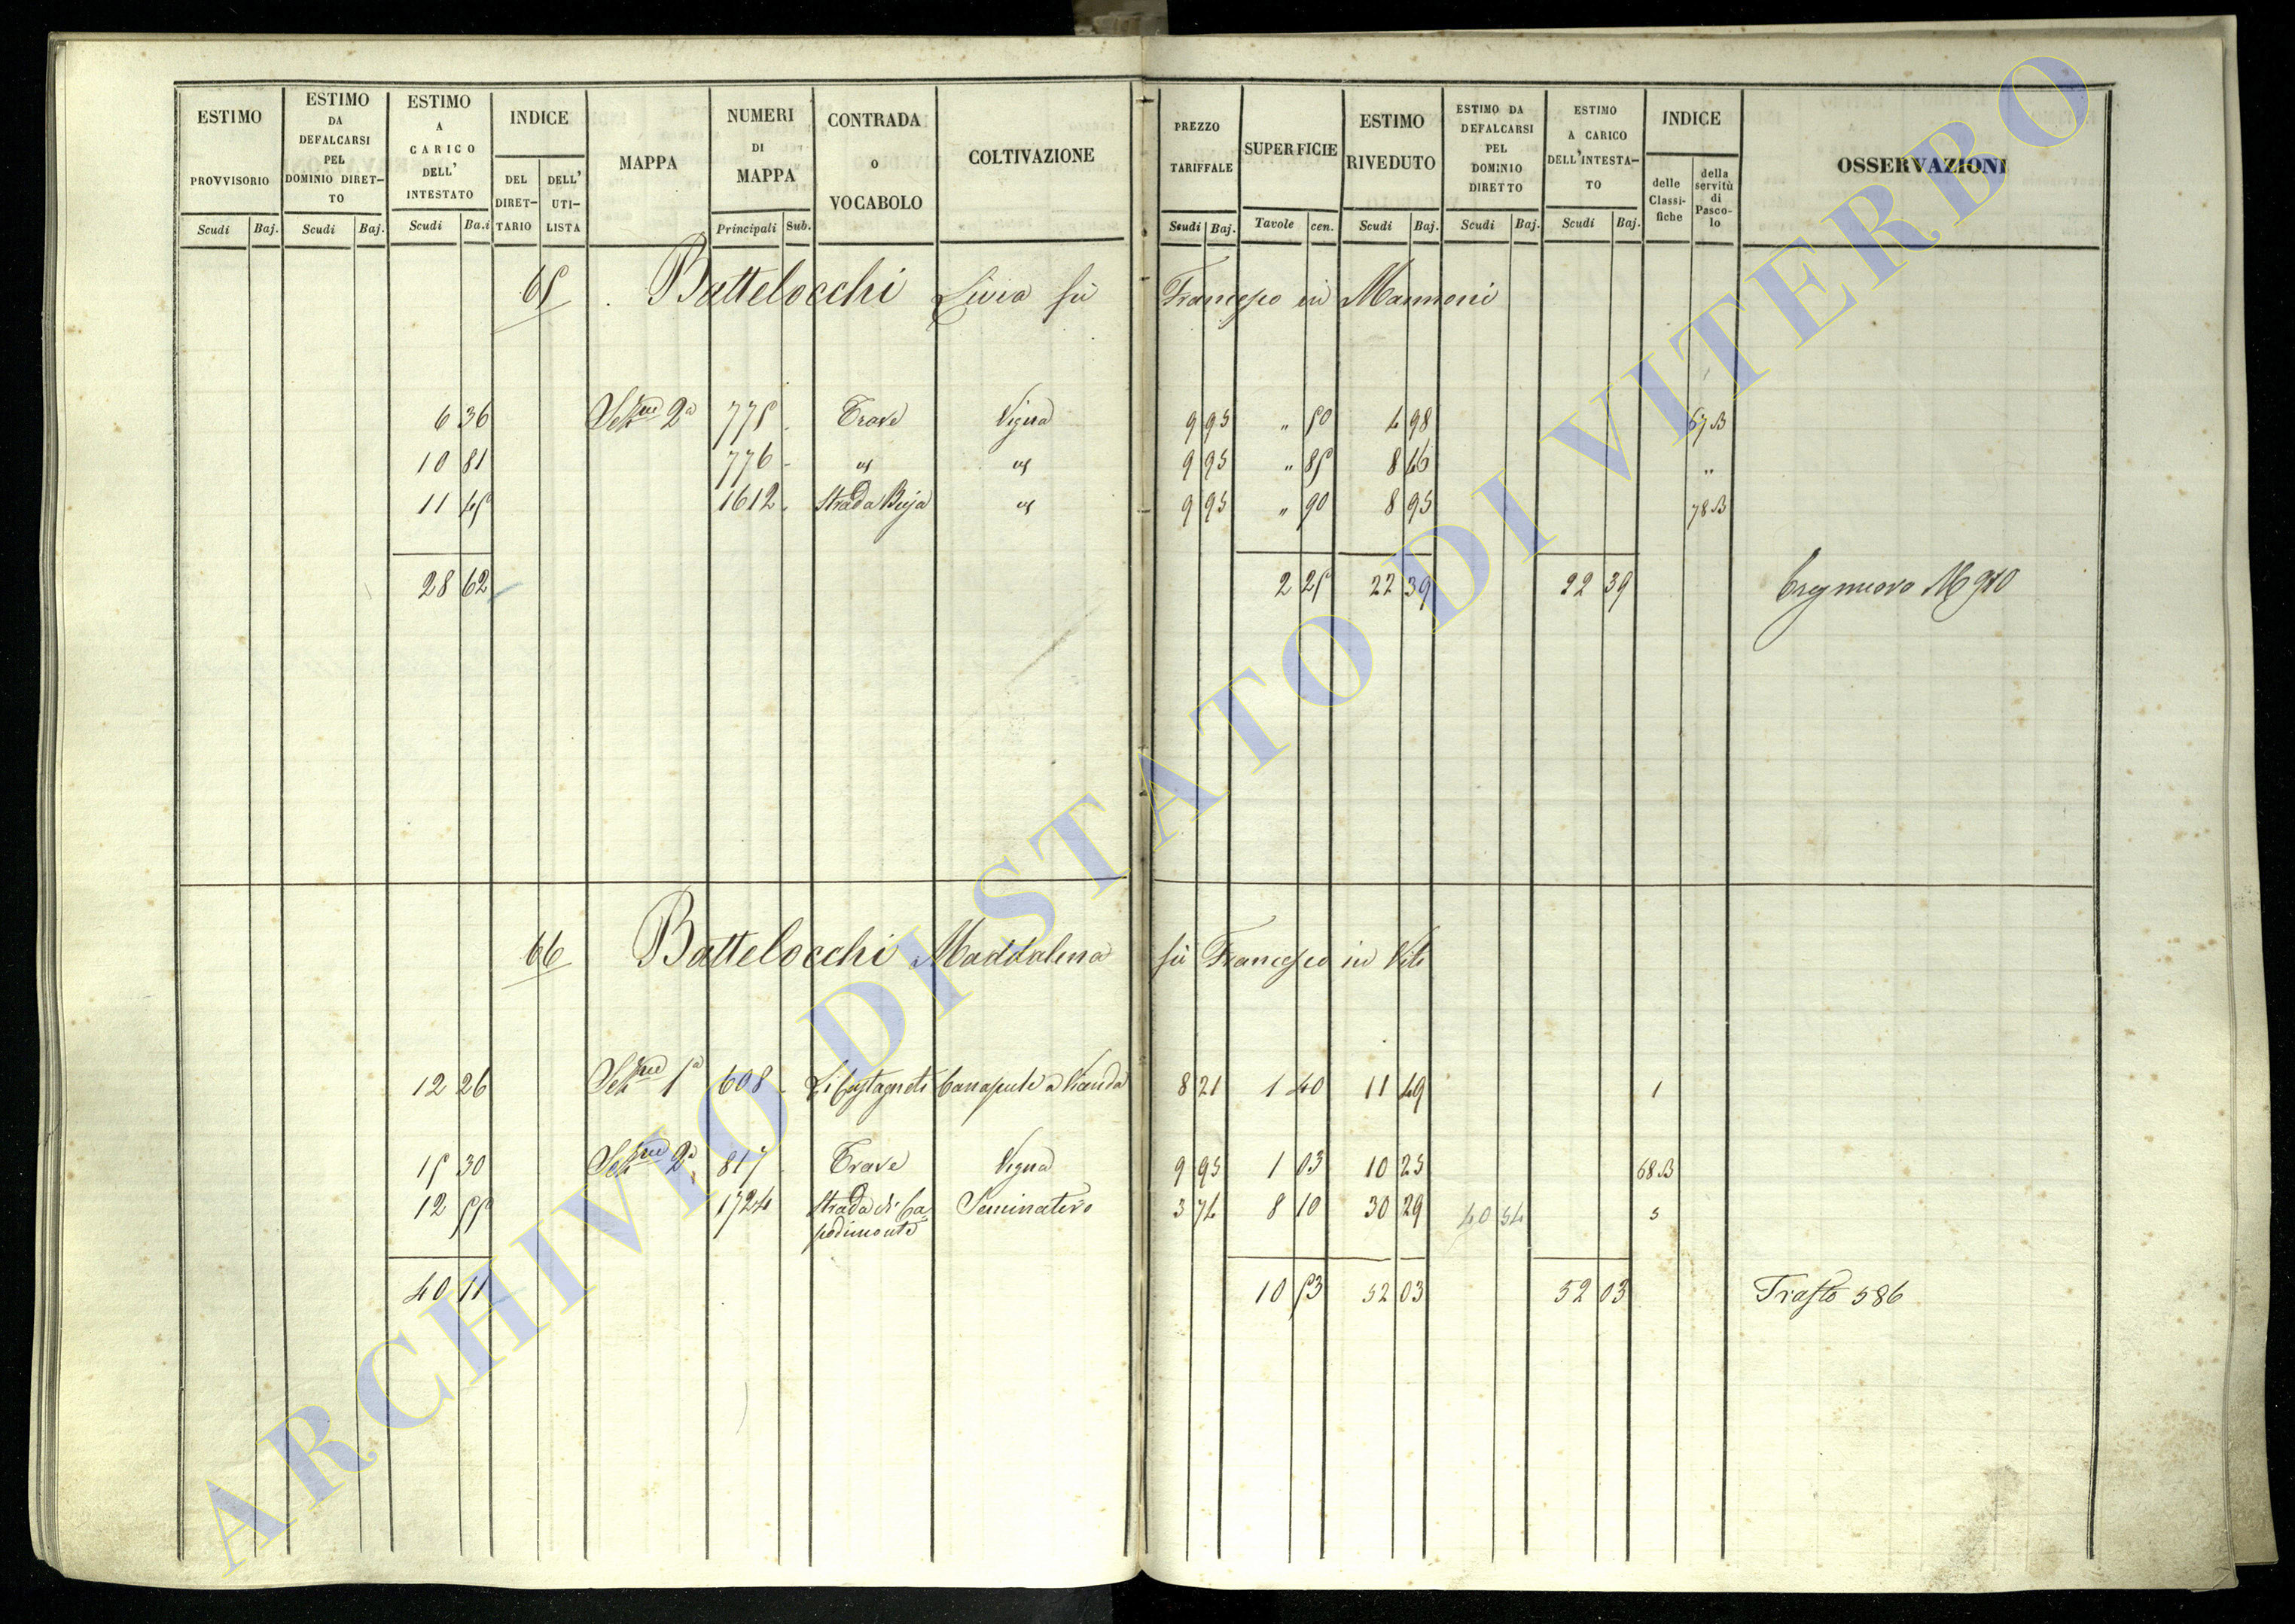 ESTIMO PROVVISORIO Scudi Baj.
ESTIMO DA DEFALCARSI PEL DOMINIO DIRET-TO Scudi Baj.
ESTIMO A CARICO DELL' INTESTATO Scudi Ba.i
INDICE DEL DIRET-TARIO DELL' UTI-LISTA
MAPPA
NUMERI DI MAPPA Principali Sub.
CONTRADA o VOCABOLO
COLTIVAZIONE
PREZZO TARIFFALE Scudi Baj.
SUPERFICIE Tavole cen.
ESTIMO RIVEDUTO Scudi Baj.
ESTIMO DA DEFALCARSI PEL DOMINIO DIRETTO Scudi Baj.
ESTIMO A CARICO DELL'INTESTA-TO Scudi Baj.
INDICE delle Classi-fiche della servitù di Pasco-lo
OSSERVAZIONI
65 Battelocchi Livia fu Francesco in Mannoni
6 36 Sezne 2a 775 Trave Vigna 9 95 " 50 4 98 67 B
10 81 776 - " " 9 95 " 85 8 46 "
11 45 1612 - Strada Buja " 9 95 " 90 8 95 78 B
28 62 2 25 22 39 22 39 910
66 Battelocchi Maddalena fu Francesco in Viti
12 26 Sezne 1a 608 - Li Castagneti Canapule a Vicenda 8 21 1 40 11 49 1
15 30 Sezne 2a 817 Trave Vigna 9 95 1 03 10 25 68 B
12 55 1724 Strada di Ca= Seminativo 3 74 8 10 30 29 40 54 5
podimonte
40 11 10 53 52 03 52 03 Trasto 586
ARCHIVIO DI STATO DI VITERBO